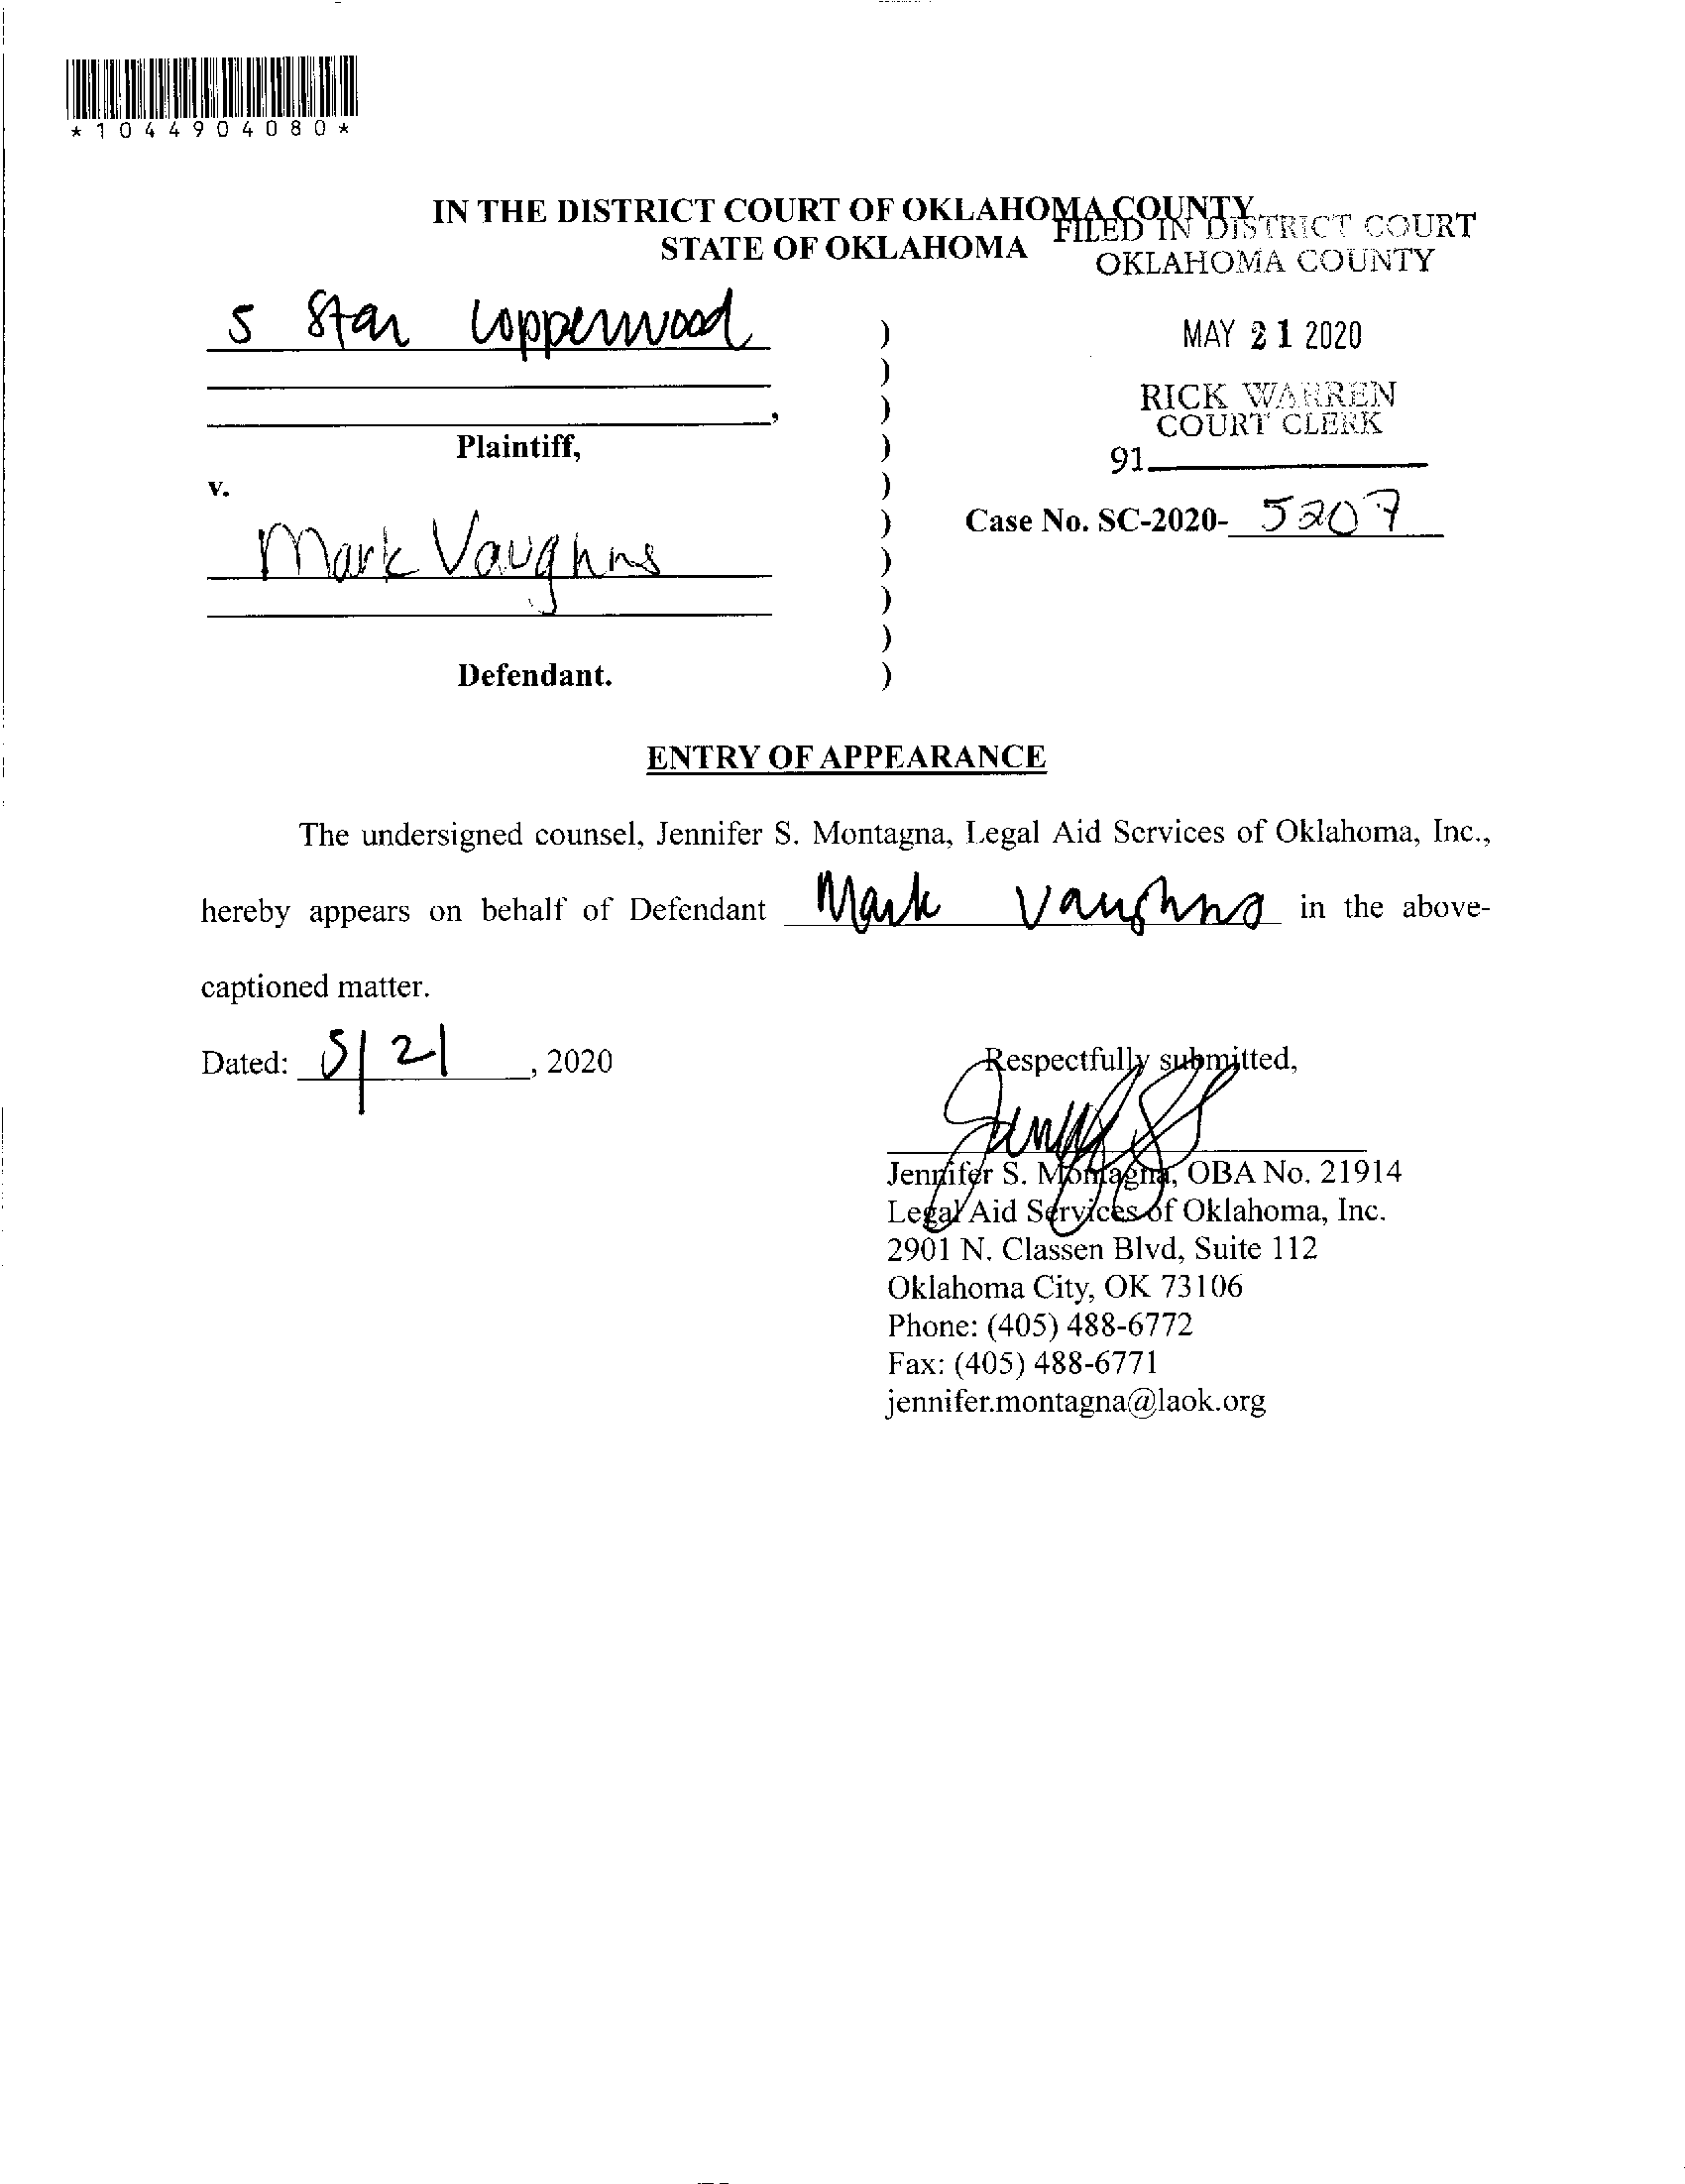 *1044904080*
IN THE DISTRICT COURT OF OKLAHOMA COUNTY
STATE OF OKLAHOMA
FILED IN DISTRICT COURT
OKLAHOMA COUNTY
MAY 21 2020
RICK WARREN
COURT CLERK
91
5 Star Copperwood
,
Plaintiff,
v.
Case No. SC-2020- 5207
Mark Vaughns
Defendant.
)
)
)
)
)
)
)
)
)
)
ENTRY OF APPEARANCE
The undersigned counsel, Jennifer S. Montagna, Legal Aid Services of Oklahoma, Inc.,
hereby appears on behalf of Defendant Mark Vaughns in the above-
captioned matter.
Dated: 5/21, 2020
Respectfully submitted,
Jennifer S. Montagna, OBA No. 21914
Legal Aid Services of Oklahoma, Inc.
2901 N. Classen Blvd, Suite 112
Oklahoma City, OK 73106
Phone: (405) 488-6772
Fax: (405) 488-6771
jennifer.montagna@laok.org